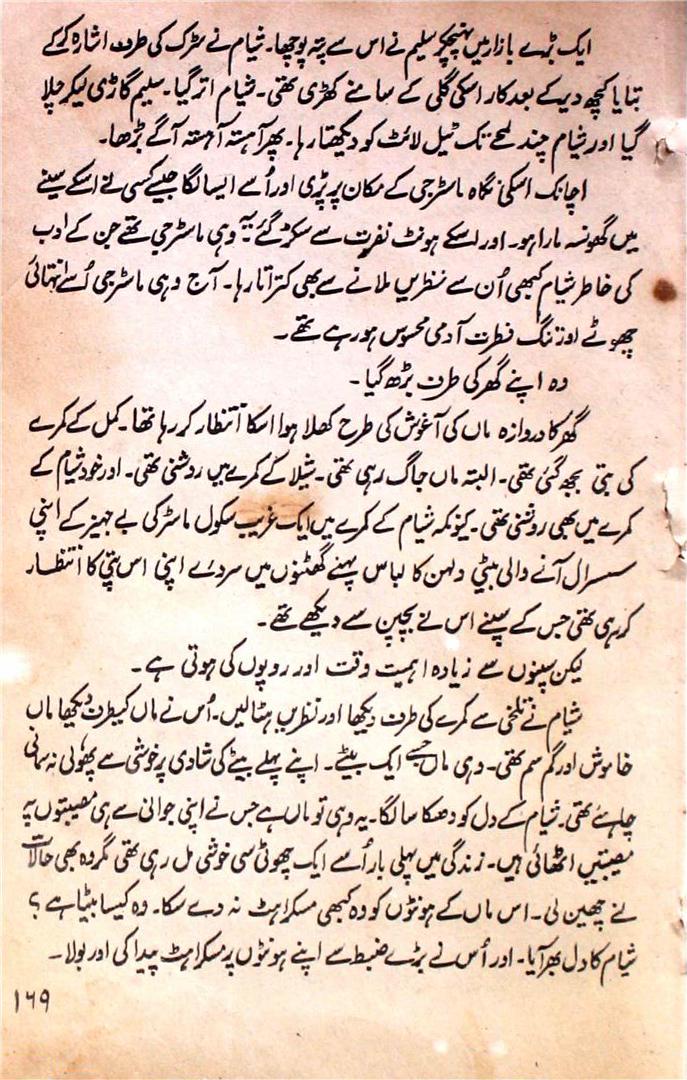 ایک بڑے بازار میں پہنچکر سلیم نے اس سے پتہ پوچھا۔ شیام نے سڑک کی طرف اشارہ کرکے
بتایا کچھ دیر کے بعد کار اسکی گلی کے سامنے کھڑی تھی۔ شیام اتر گیا۔ سلیم گاڑی لیکر چلا
گیا اور شیام چند لمحے تک ٹیل لائٹ کو دیکھتا رہا۔ پھر آہستہ آہستہ آگے بڑھا۔
اچانک اسکی نگاہ ماسٹر جی کے مکان پر پڑی اور اُسے ایسا لگا جیسے کسی نے اسکے سینے
میں گھونسہ مارا ہو۔ اور اسکے ہونٹ نفرت سے سکڑ گئے یہ وہی ماسٹر جی تھے جن کے ادب
کی خاطر شیام کبھی اُن سے نظریں ملانے سے بھی کتراتا رہا۔ آج وہی ماسٹر جی اُسے انتہائی
چھوٹے اور تنگ فطرت آدمی محسوس ہو رہے تھے۔
وہ اپنے گھر کی طرف بڑھ گیا۔
گھر کا دروازہ ماں کی آغوش کی طرح کھلا ہوا اسکا انتظار کر رہا تھا۔ کمل کے کمرے
کی بتی بجھ گئی تھی۔ البتہ ماں جاگ رہی تھی۔ شیلا کے کمرے میں روشنی تھی۔ اور خود شیام کے
کمرے میں بھی روشنی تھی۔ کیونکہ شیام کے کمرے میں ایک غریب سکول ماسٹر کی بے جہیز کے اپنی
سسرال آنے والی بیٹی دلہن کا لباس پہنے گھٹنوں میں سر دے اپنی اس پتی کا انتظار
کر رہی تھی جس کے سپنے اس نے بچپن سے دیکھے تھے۔
لیکن سپنوں سے زیادہ اہمیت وقت اور روپوں کی ہوتی ہے۔
شیام نے تلخی سے کمرے کی طرف دیکھا اور نظریں ہٹالیں۔ اُس نے ماں کیطرف دیکھا ماں
خاموش اور گم سم تھی۔ وہی ماں جسے ایک بیٹے۔ اپنے پہلے بیٹے کی شادی پر خوشی سے پھولی نہ سمانی
چاہئے تھی۔ شیام کے دل کو دھکا سا لگا۔ یہ وہی تو ماں ہے جس نے اپنی جوانی سے ہی مصیبتوں پر
مصیبتیں اٹھائی ہیں۔ زندگی میں پہلی بار اُسے ایک چھوٹی سی خوشی مل رہی تھی مگر وہ بھی حالات
نے چھین لی۔ اس ماں کے ہونٹوں کو وہ کبھی مسکراہٹ نہ دے سکا۔ وہ کیسا بیٹا ہے؟
شیام کا دل بھر آیا۔ اور اُس نے بڑے ضبط سے اپنے ہونٹوں پر مسکراہٹ پیدا کی اور بولا۔
۱۶۹